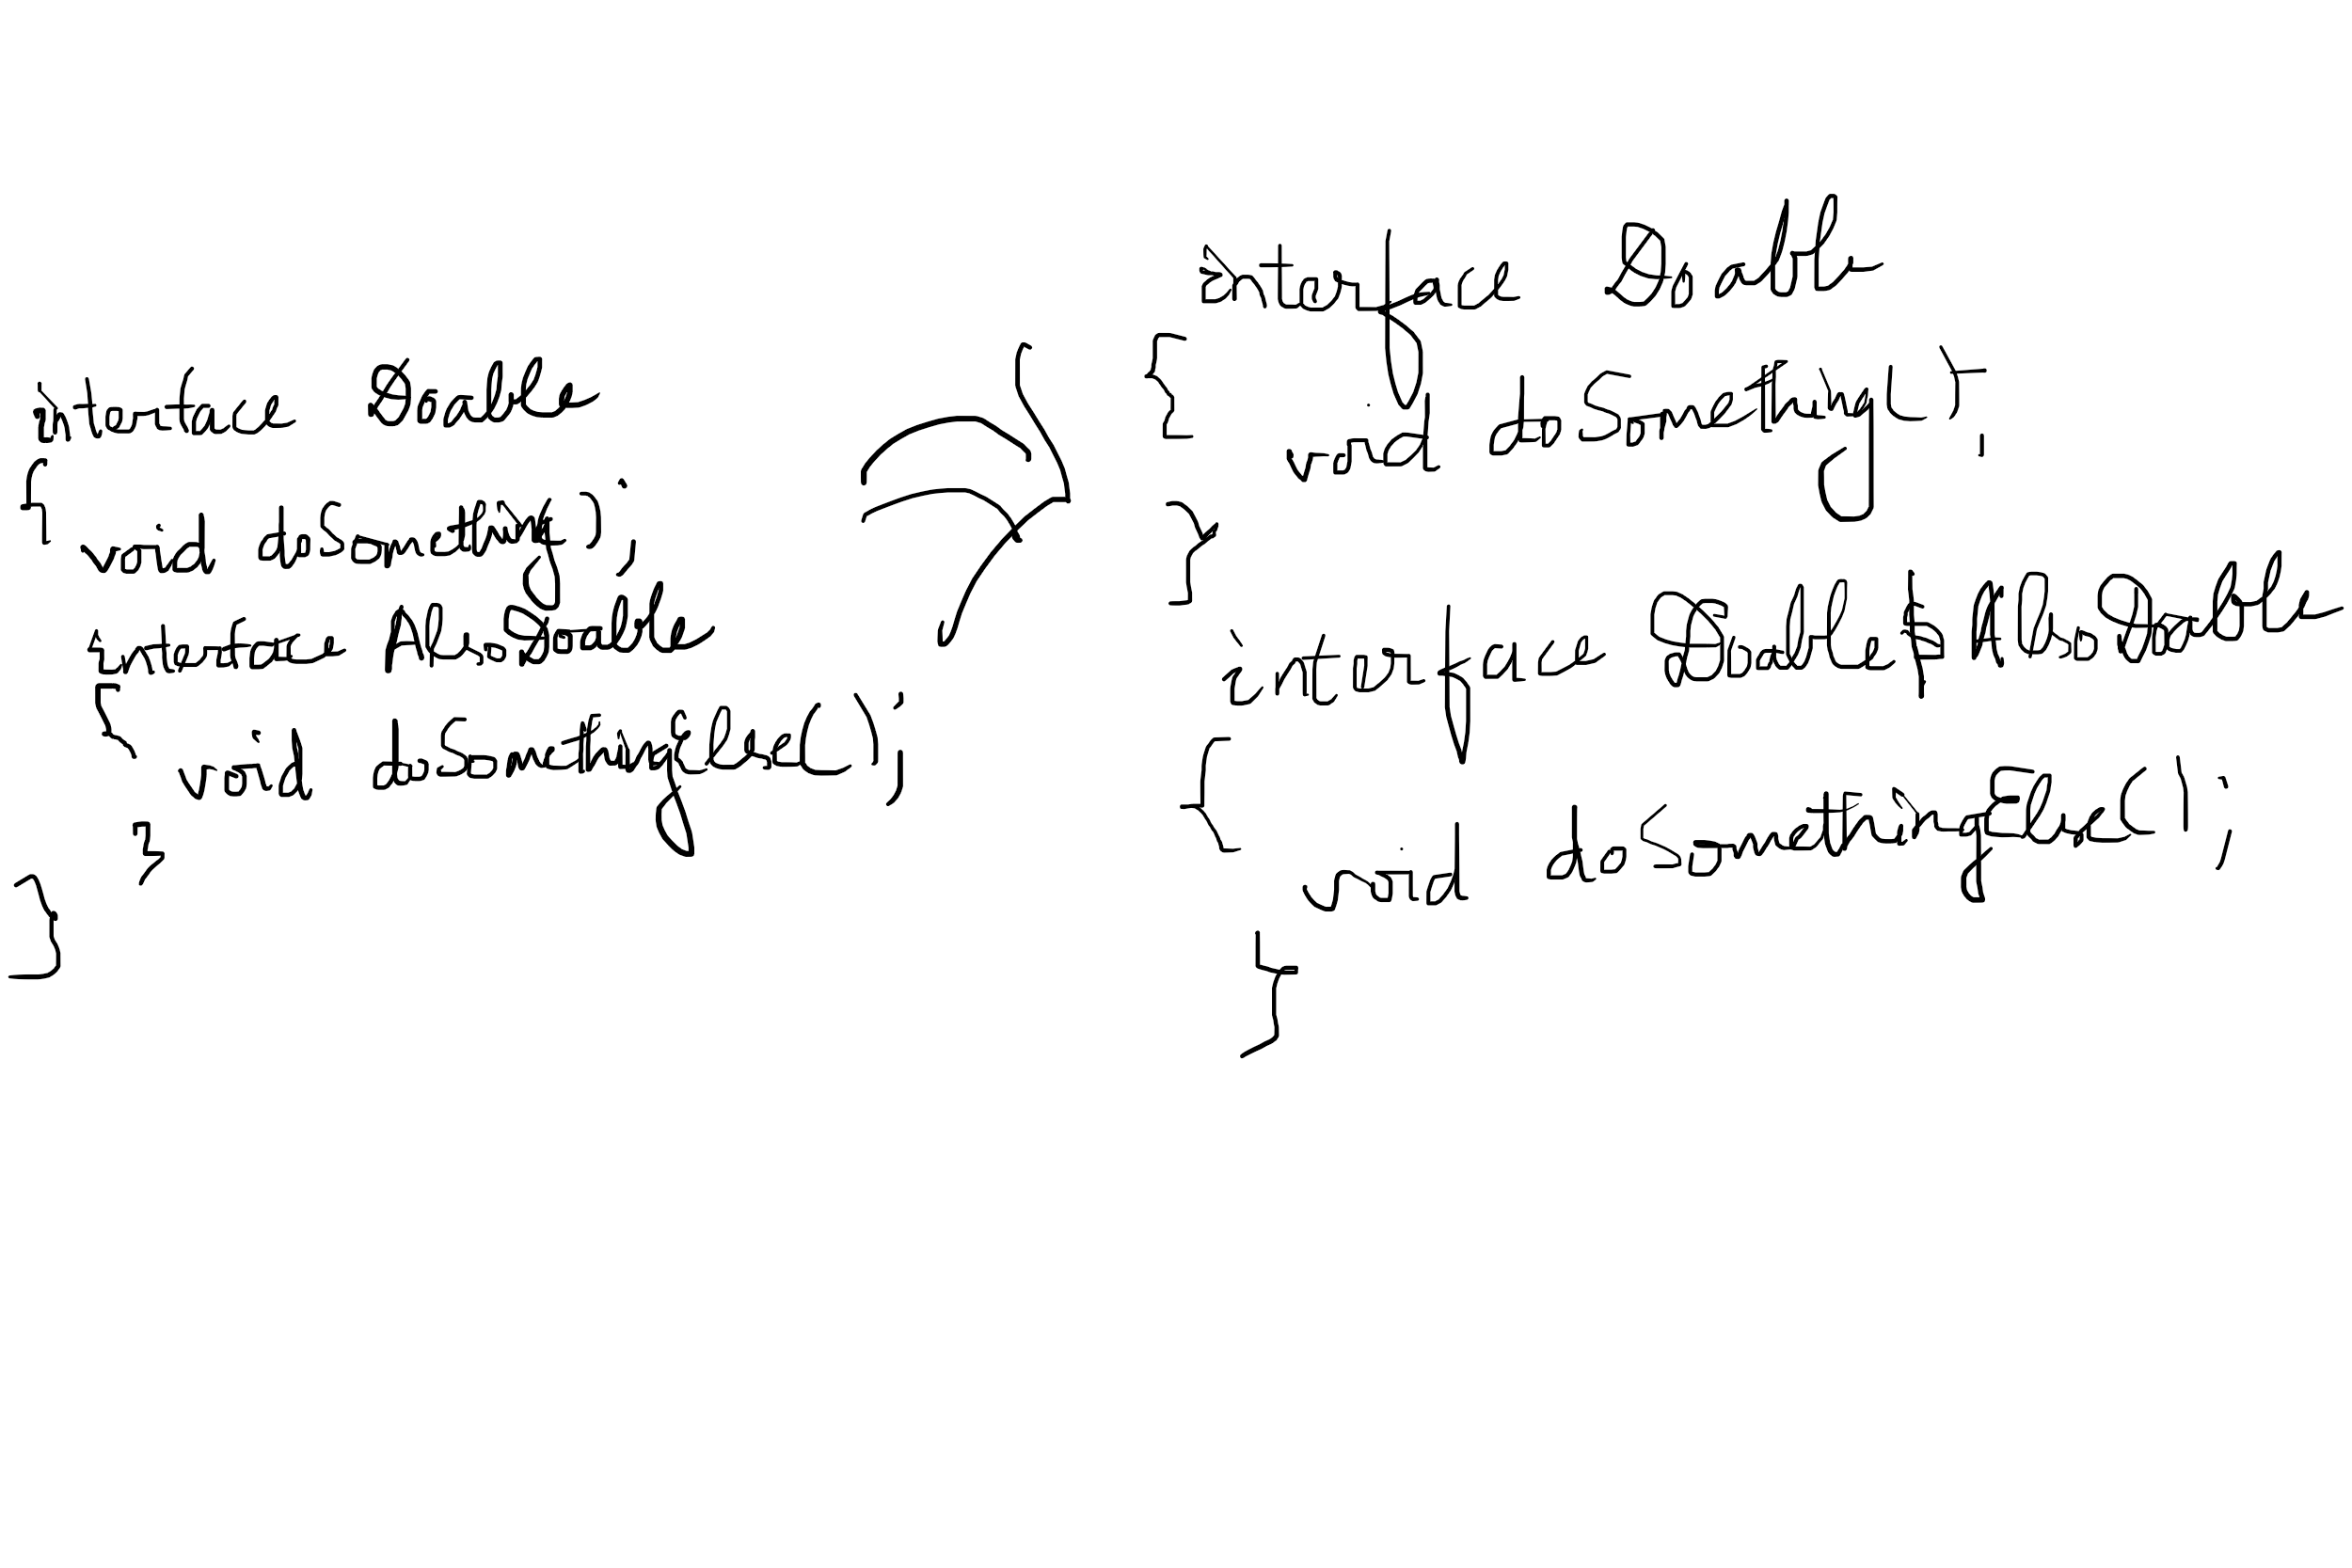 interface Doable
{
void doSomething();
interface AlsoDoable
{
void doSomethingElse();
}
}
interface Doable
{
void doSomething();
}
interface Doable$AlsoDoable
{
void doSomethingElse();
}